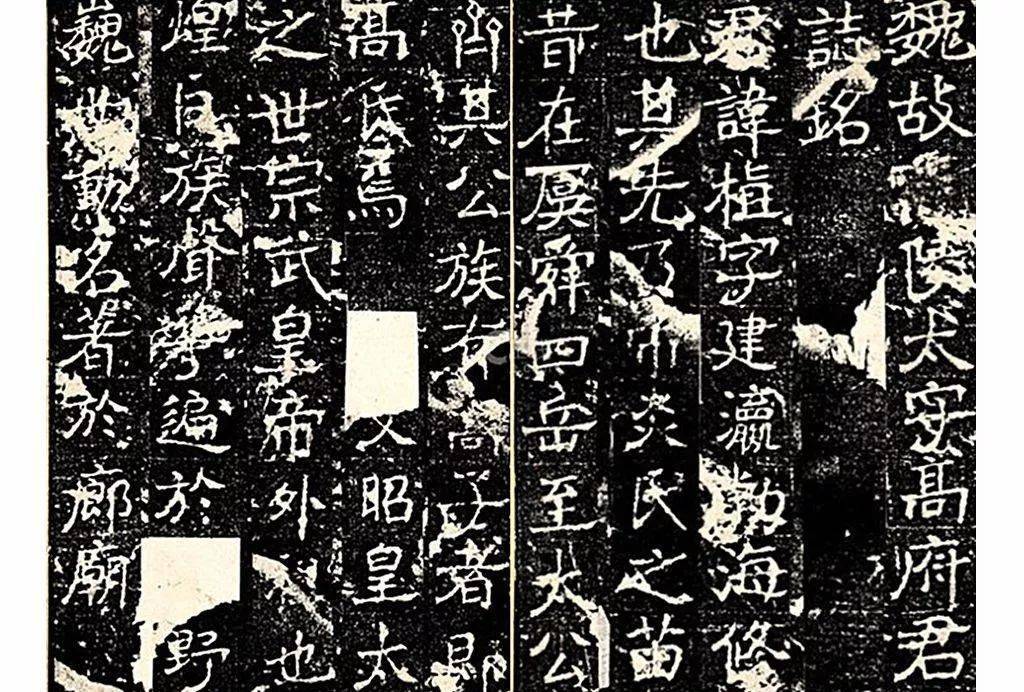 魏故太高府君
誌銘
君諱植字建瀛勃海修
也其先乃炎氏之苗
昔在虞舜四岳至太公
齊其公族有高子者
高氏焉文昭皇太
之世宗武皇帝外也
煌自族聲遍於野
巍世勳名著於廊廟